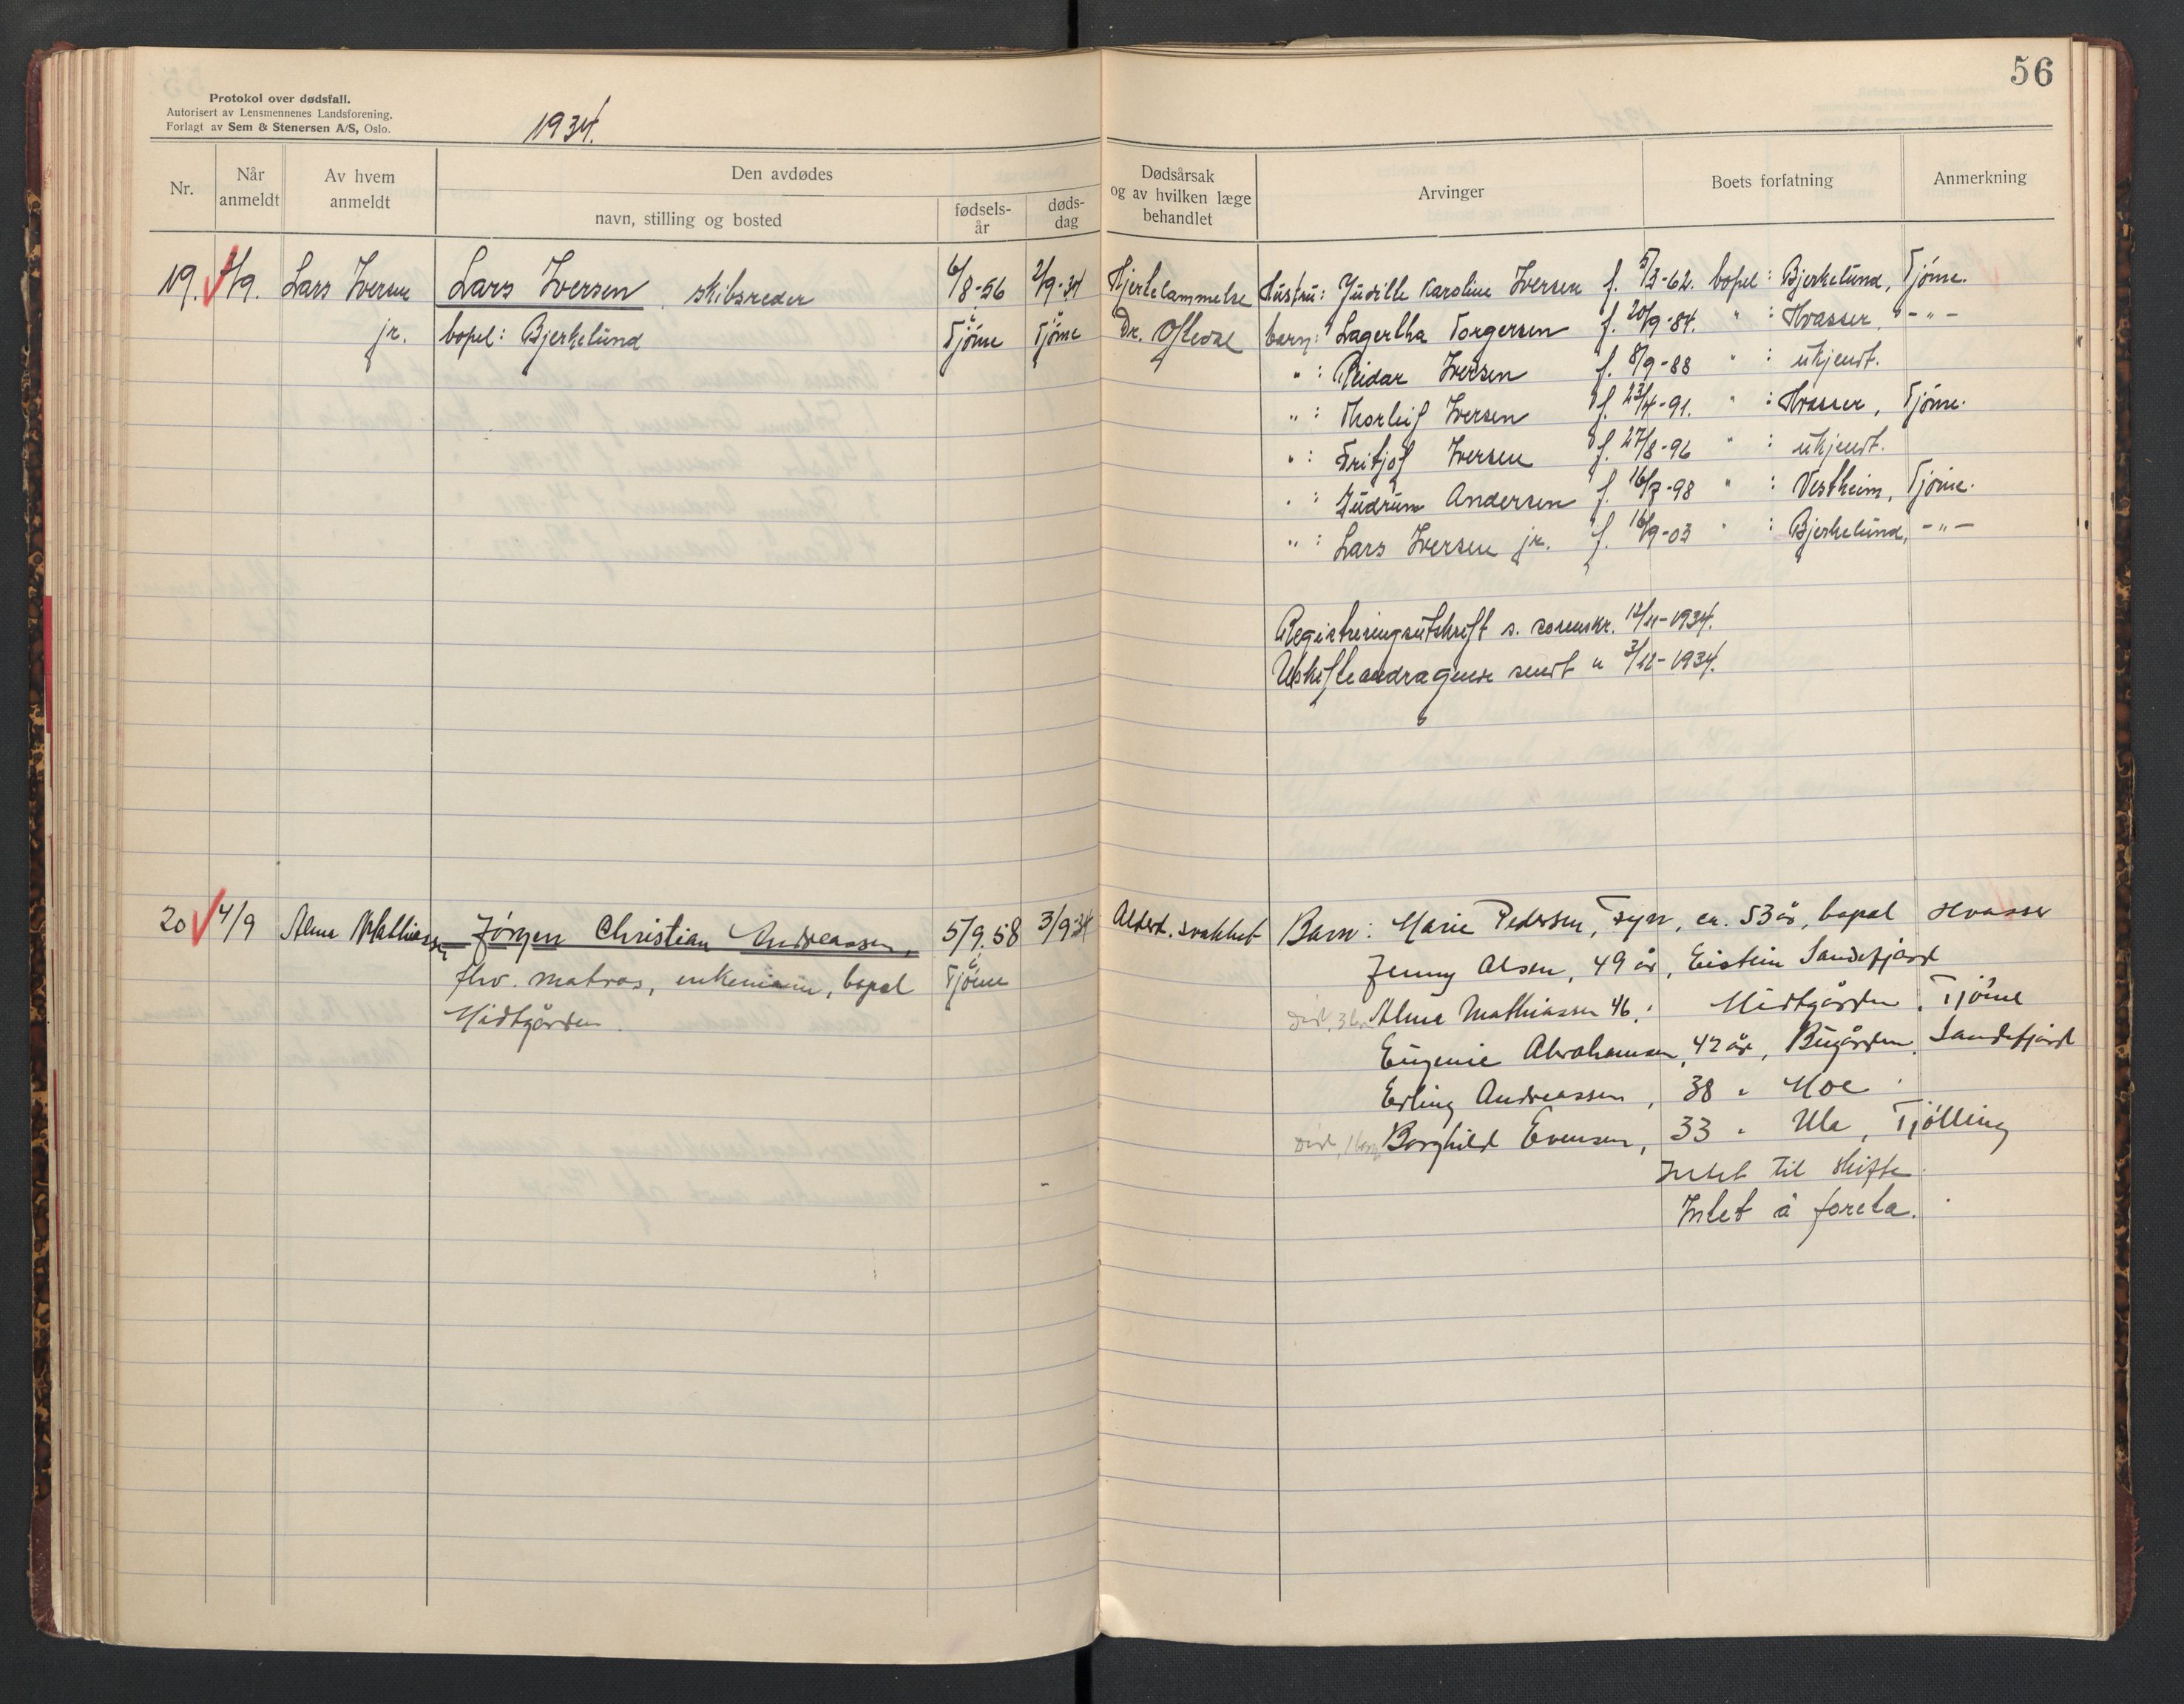 56
Protokol over dødsfall.
Autorisert av Lensmennenes Landsforening.
Forlagt av Sem & Stenersen A/S, Oslo.
1934.
Nr.
Når anmeldt
Av hvem anmeldt
Den avdødes
navn, stilling og bosted
fødsels-år
døds-dag
Dødsårsak og av hvilken læge behandlet
Arvinger
Boets forfatning
Anmerkning
19. /9. Lars Iversen Lars Iversen, skibsreder 6/8-56 2/9-34 Hjertelammelse Hustru: Karoline Iversen f. 5/3-62. bopel: Bjerkelund, Tjøme.
jr. bopel: Bjerkelund Tjøme Tjøme Dr. Oftedal barn: Lagertha Torgersen f. 20/9-84. " : Hvasser, -"-
" : Reidar Iversen f. 8/9-88 " : ukjendt.
" : Thorleif Iversen f. 23/4-91. " : Hvasser, Tjøme.
" : Fritjof Iversen f. 27/8-96 " : ukjendt.
" : Gudrun Andersen f. 16/7-98 " : Vestheim, Tjøme.
" : Lars Iversen jr. f. 16/9-03 " : Bjerkelund, -"-
Registreringsutskrift s. sorenskr. 12/11-1934.
Uskifteandragende sendt " 3/12-1934.
20 4/9 Alma Mathiassen Jørgen Christian Andreassen, 5/9.58 3/9-34 Alderd. svakhet Barn: Marie Pedersen, ca. 53 år, bopel Hvasser
fhv. matros, enkemann, bopel Tjøme Jenny Olsen, 49 år, Eistein Sandefjord
Midtgården. Alma Mathiassen 46, : Midtgården, Tjøme
Eugenie Abrahamsen, 42 år, Bugården, Sandefjord
Erling Andreassen, 38 " Moe
Borghild Evensen, 33 " Ula, Tjølling
Intet til skifte.
Intet å foreta.